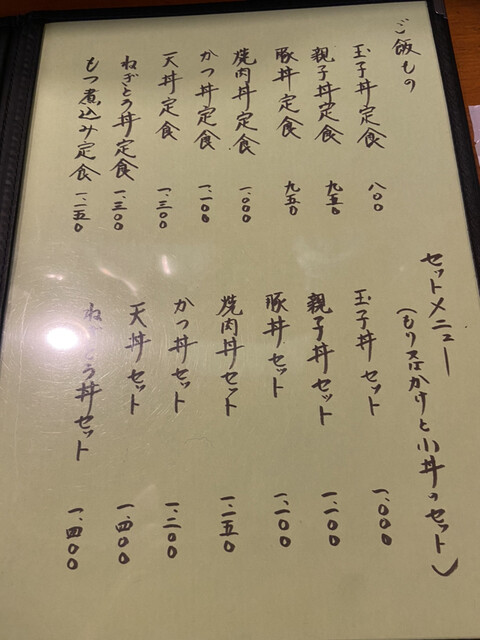 ご飯もの
玉子丼定食 八〇〇
親子丼定食 九五〇
豚丼定食 九五〇
焼肉丼定食 一、〇〇〇
かつ丼定食 一、一〇〇
天丼定食 一、三〇〇
ねぎとろ丼定食 一、三〇〇
もつ煮込み定食 一、二五〇
セットメニュー
(もり又はかけと小丼のセット)
玉子丼セット 一、〇〇〇
親子丼セット 一、一〇〇
豚丼セット 一、一〇〇
焼肉丼セット 一、一五〇
かつ丼セット 一、二〇〇
天丼セット 一、四〇〇
ねぎとろ丼セット 一、四〇〇